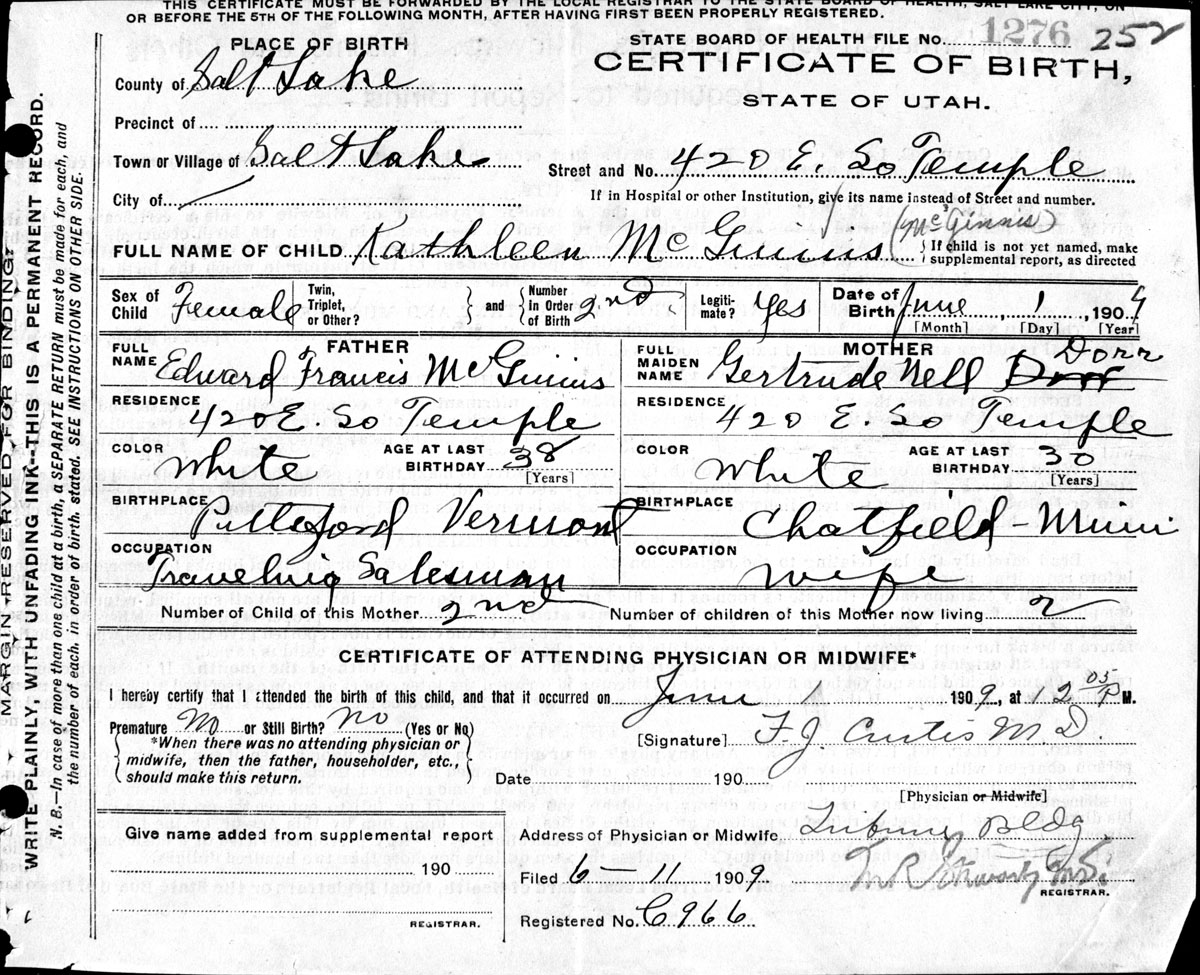 THIS CERTIFICATE MUST BE FORWARDED BY THE LOCAL REGISTRAR TO THE STATE BOARD OF HEALTH, SALT LAKE CITY, ON
OR BEFORE THE 5TH OF THE FOLLOWING MONTH, AFTER HAVING FIRST BEEN PROPERLY REGISTERED.
MARGIN RESERVED FOR BINDING.
WRITE PLAINLY, WITH UNFADING INK--THIS IS A PERMANENT RECORD.
N. B.—In case of more than one child at a birth, a SEPARATE RETURN must be made for each, and
the number of each, in order of birth, stated. SEE INSTRUCTIONS ON OTHER SIDE.
STATE BOARD OF HEALTH FILE No. 1276 252
CERTIFICATE OF BIRTH,
STATE OF UTAH.
PLACE OF BIRTH
County of Salt Lake
Precinct of
Town or Village of Salt Lake
City of
Street and No. 420 E. So Temple
If in Hospital or other Institution, give its name instead of Street and number.
FULL NAME OF CHILD Kathleen McGinnis (McGinnis)
If child is not yet named, make
supplemental report, as directed
Sex of Child Female
Twin, Triplet, or Other?
and
Number in Order of Birth 2nd
Legiti- mate? Yes
Date of Birth June 1 1909
[Month] [Day] [Year]
FATHER
FULL NAME Edward Francis McGinnis
RESIDENCE
420 E. So Temple
COLOR White AGE AT LAST BIRTHDAY 38
[Years]
BIRTHPLACE
Pittsford Vermont
OCCUPATION
Traveling Salesman
MOTHER
FULL MAIDEN NAME Gertrude Nell Dorr Dorr
RESIDENCE
420 E. So Temple
COLOR White AGE AT LAST BIRTHDAY 30
[Years]
BIRTHPLACE
Chatfield - Minn
OCCUPATION
Wife
Number of Child of this Mother 2nd Number of children of this Mother now living 2
CERTIFICATE OF ATTENDING PHYSICIAN OR MIDWIFE*
I hereby certify that I attended the birth of this child, and that it occurred on June 1 1909, at 12 05 P M.
Premature No or Still Birth? No (Yes or No)
*When there was no attending physician or
midwife, then the father, householder, etc.,
should make this return.
[Signature] F. J Curtis M D.
Date 190
[Physician or Midwife]
Give name added from supplemental report
190
REGISTRAR.
Address of Physician or Midwife Tribune Bldg
Filed 6 — 11 1909
REGISTRAR.
Registered No. C 966